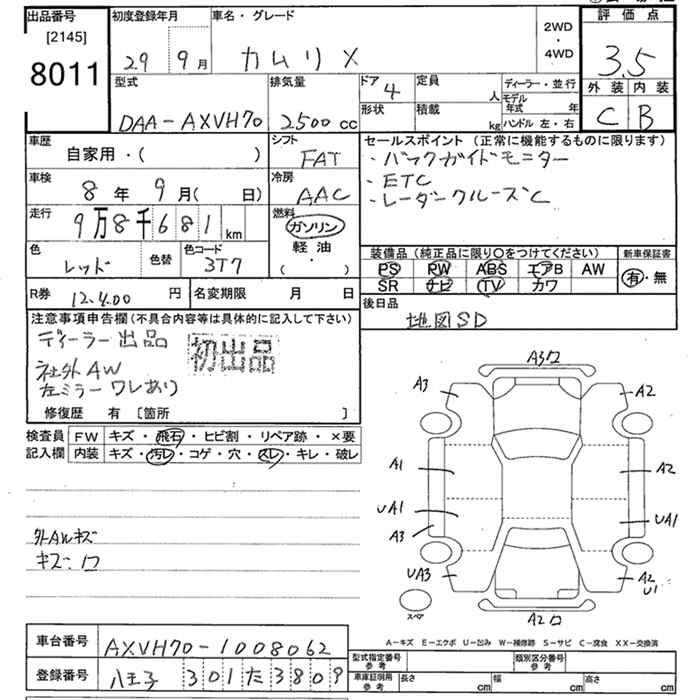 出品番号
[2145]
8011
初度登録年月
29 9月
車名・グレード
カムリ X
2WD
・
4WD
評価点
3.5
外装 内装
C B
型式
DAA-AXVH70
排気量
2500 cc
ドア 4
形状
定員 人
積載 kg
ディーラー・並行
モデル年式 年
ハンドル 左・右
車歴
自家用・( )
シフト
FAT
車検
8年 9月( 日)
冷房
AAC
走行
9万8千681 km
燃料
ガソリン
軽油
( ・ )
色
レッド
色替
色コード
3T7
セールスポイント (正常に機能するものに限ります)
・バックガイドモニター
・ETC
・レーダークルーズC
装備品 (純正品に限り○をつけてください)
新車保証書
PS PW ABS エアB AW
SR ナビ TV カワ
有・無
R券 12,400 円
名変期限 月 日
後日品
地図SD
注意事項申告欄(不具合内容等は具体的に記入して下さい)
ディーラー出品
初出品
社外AW
左ミラーワレあり
修復歴 有 [箇所 ]
検査員
記入欄
FW キズ・飛石・ヒビ割・リペア跡・×要
内装 キズ・汚レ・コゲ・穴・スレ・キレ・破レ
外AWキズ
キズ:ロ
A3ロ
A3
A2
A1
A2
UA1
UA1
A3
UA3
A2
U1
スペア
A2ロ
A-キズ E-エクボ U-凹み W-補修跡 S-サビ C-腐食 XX-交換済
車台番号
AXVH70-1008062
登録番号
八王子 301 た 3809
型式指定番号
参考
類別区分番号
参考
車庫証明用
参考
長さ cm
幅 cm
高さ cm